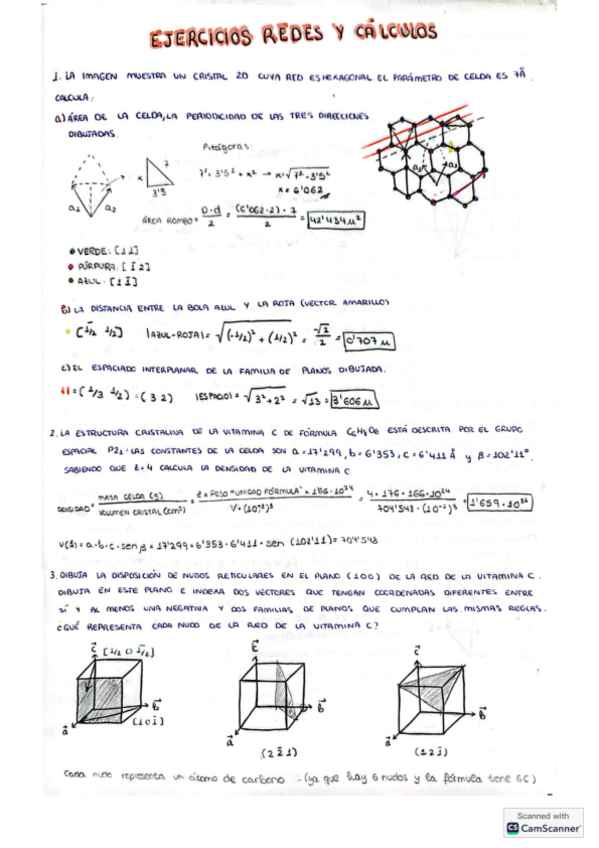 EJERCICIOS REDES Y CÁLCULOS
1. LA IMAGEN MUESTRA UN CRISTAL 2D CUYA RED ES HEXAGONAL EL PARÁMETRO DE CELDA ES 7Å.
CALCULA:
a) ÁREA DE LA CELDA, LA PERIODICIDAD DE LAS TRES DIRECCIONES
DIBUJADAS.
Pitágoras:
7² = 3'5² + x² → x = √7² - 3'5²
x = 6'062
x
7
3'5
a1 a2
ÁREA ROMBO = D·d / 2 = (6'062·2)·7 / 2 = 42'434 u²
a1 a2
VERDE: [1 1]
PÚRPURA: [1̄ 2]
AZUL: [1 1̄]
b) LA DISTANCIA ENTRE LA BOLA AZUL Y LA ROJA (VECTOR AMARILLO)
[1̄/2 1/2] |AZUL-ROJA| = √(-1/2)² + (1/2)² = √2/2 = 0'707 u
c) EL ESPACIADO INTERPLANAR DE LA FAMILIA DE PLANOS DIBUJADA.
= (1/3 1/2) = (3 2) |ESPACIO| = √3² + 2² = √13 = 3'606 u
2. LA ESTRUCTURA CRISTALINA DE LA VITAMINA C DE FÓRMULA C6H8O6 ESTÁ DESCRITA POR EL GRUPO
ESPACIAL P21. LAS CONSTANTES DE LA CELDA SON a = 17'299, b = 6'353, c = 6'411 Å y β = 102'11°.
SABIENDO QUE Z = 4 CALCULA LA DENSIDAD DE LA VITAMINA C.
DENSIDAD = MASA CELDA (g) / VOLUMEN CRISTAL (cm³) = Z × PESO "UNIDAD FÓRMULA" × 1'66·10²⁴ / V·(10⁻⁸)³ = 4·176·1'66·10²⁴ / 704'548·(10⁻⁸)³ = 1'659·10
V(Å) = a·b·c·sen β = 17'299·6'353·6'411·sen (102'11) = 704'548
3. DIBUJA LA DISPOSICIÓN DE NUDOS RETICULARES EN EL PLANO (100) DE LA RED DE LA VITAMINA C.
DIBUJA EN ESTE PLANO E INDEXA DOS VECTORES QUE TENGAN COORDENADAS DIFERENTES ENTRE
SÍ Y AL MENOS UNA NEGATIVA Y DOS FAMILIAS DE PLANOS QUE CUMPLAN LAS MISMAS REGLAS.
¿QUÉ REPRESENTA CADA NUDO DE LA RED DE LA VITAMINA C?
c [1/2 0 1̄/2]
b
a
[1 0 1̄]
c
b
a
(2 2̄ 1)
c
b
a
(1 2 1̄)
Cada nudo representa un átomo de carbono (ya que hay 6 nudos y la fórmula tiene 6C)
Scanned with
CS CamScanner